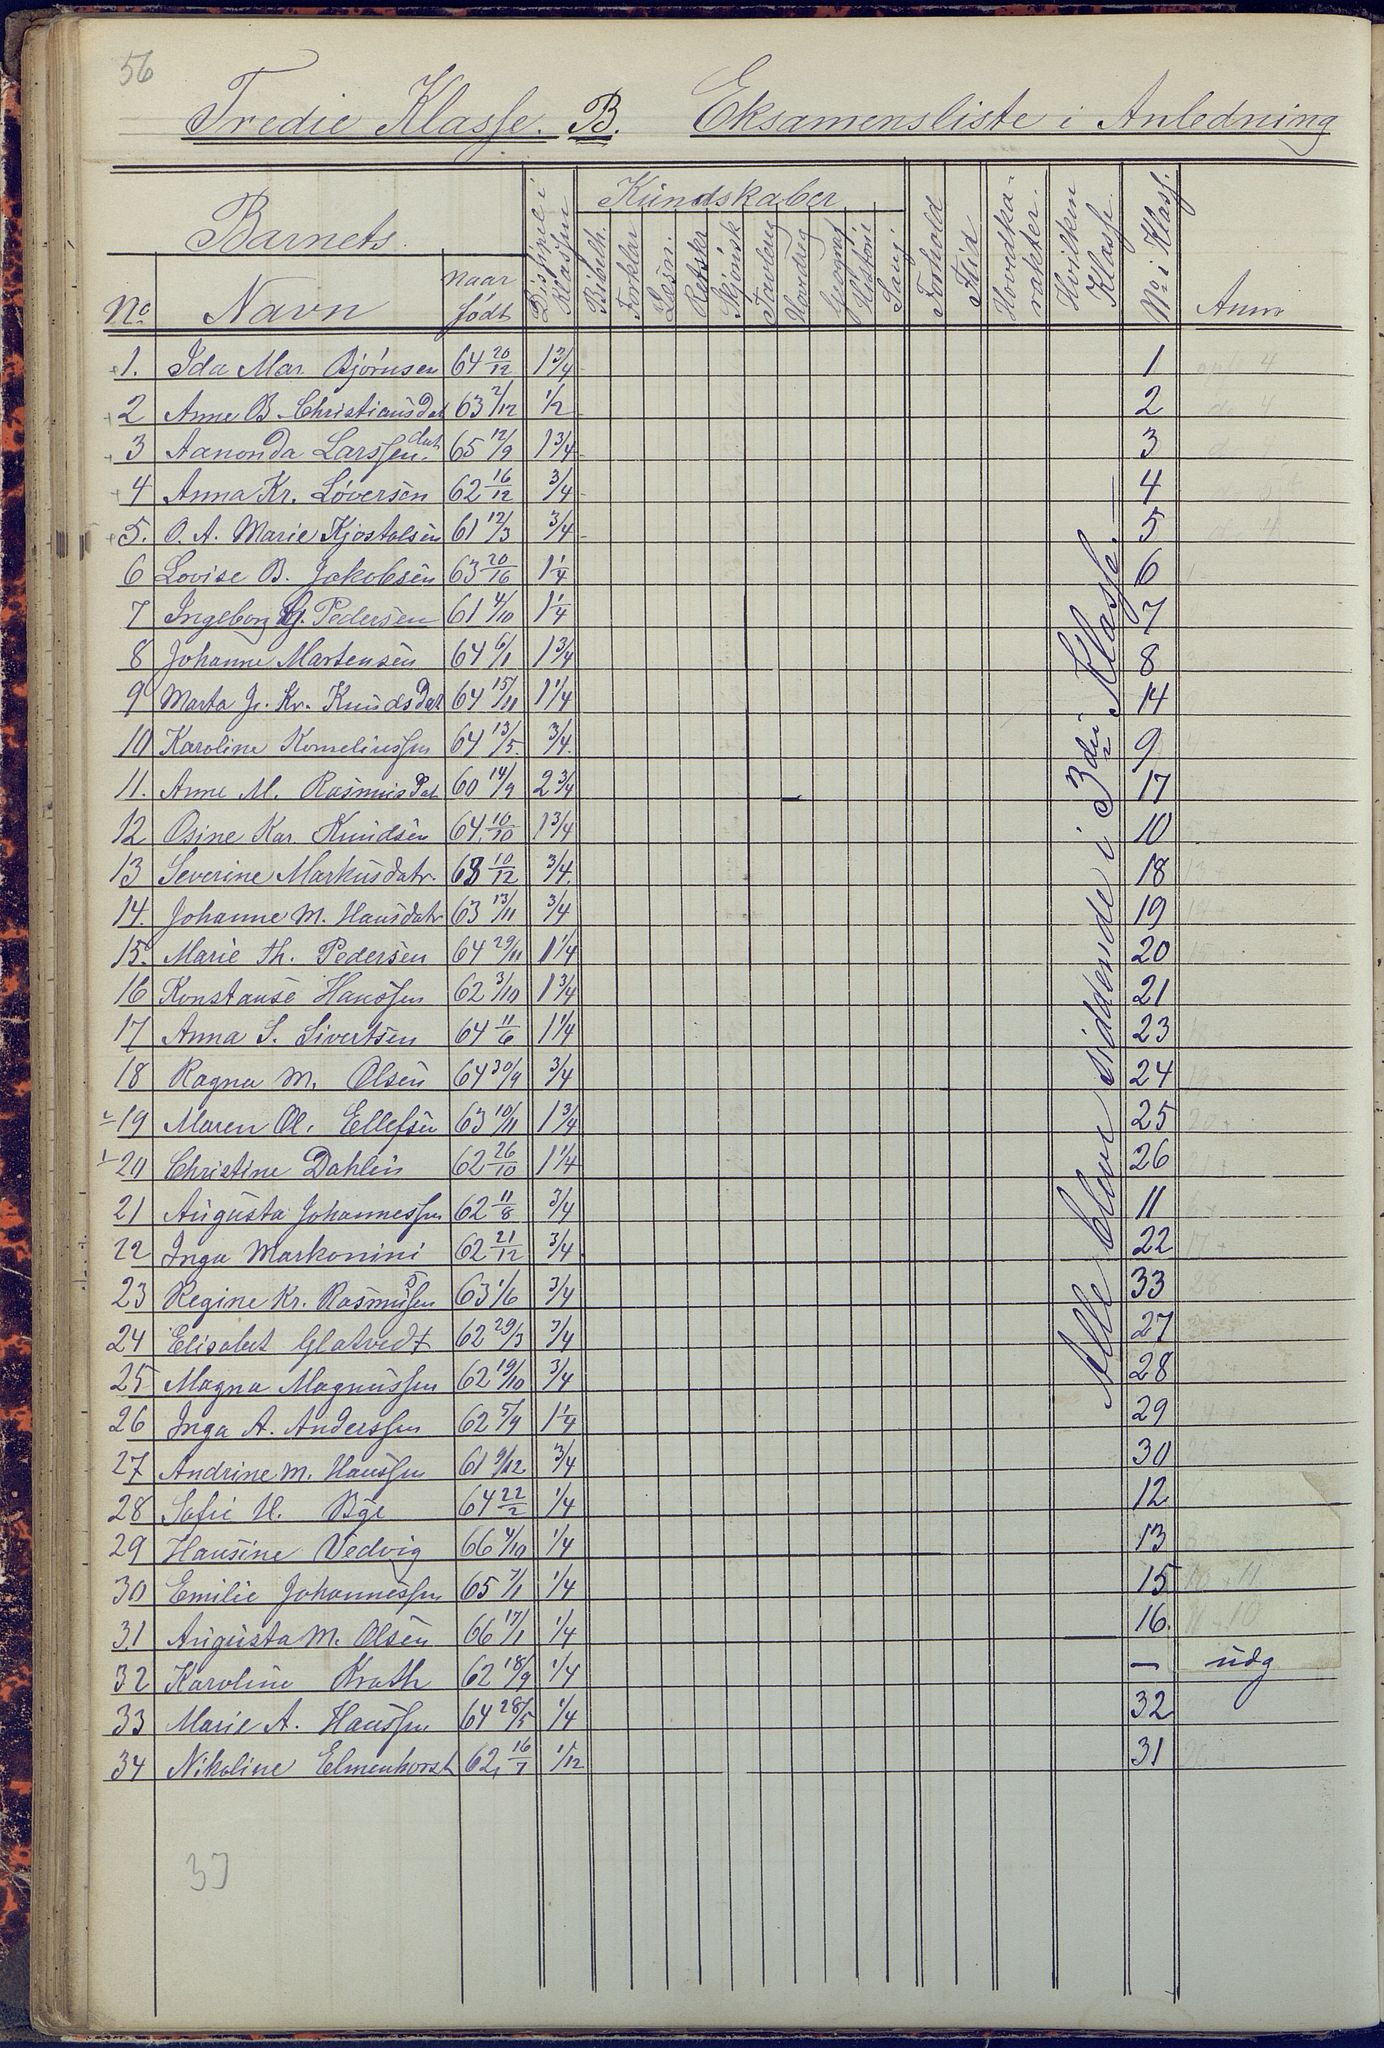 56
Tredie Klasse. B. Eksamensliste i Anledning
Barnets
Kundskaber
No Navn naar født Discipel i Klassen Bibelh. Forklar Læsn. Retskr Skjønsk Tavlereg Hovdreg Geograf Historie Sang. Forhold Flid Hovedkarakter. Hvilken Klasse. No i Klass. Anm
1. Ida Mar. Bjørnsen 64 20/12 1 3/4 1
2 Anne B. Christiansdat 63 2/12 1/2 2
3 Aanonda Larssen dat 65 12/9 1 3/4 3
4 Anna Kr. Løversen 62 16/12 3/4 4
5. O. A. Marie Kjostolsen 61 12/3 3/4 5
6 Lovise B. Jakobsen 63 20/16 1 1/4 6
7 Ingeborg Pedersen 61 4/10 1 1/4 7
8 Johanne Martensen 64 6/1 1 3/4 8
9 Marta J. Kr. Knudsdat 64 15/11 1 1/4 14
10 Karoline Korneliussen 64 13/5. 3/4. 9
11. Anne M. Rasmusdat 60 14/9 2 3/4 17
12 Osine Kar. Knudsen 64. 10/10 1 3/4 10
13 Severine Markusdatr. 63 10/12 3/4. 18
14. Johanne M. Hansdatr 63 13/11 3/4 19
15. Marie Th. Pedersen 64 29/11 1 1/4 20
16 Konstanse Hanssen 62 3/10 1 3/4 21
17 Anna S. Sivertsen 64 11/6 1 1/4 23
18 Ragna M. Olsen 64 30/9 3/4 24
19 Maren Ol. Ellefsen 63 10/11 1 3/4 25
20 Christine Dahlin 62 26/10 1 1/4 26
21 Augusta Johannessen 62 11/8 3/4 11
22 Inga Markonini 62 21/12 3/4 22
23 Regine Kr. Rasmussen 63 1/6 3/4 33
24 Elisabet Glatvedt 62 29/3 3/4 27
25 Magna Magnussen 62 19/10 3/4 28
26 Inga A. Anderssen 62 5/9 1 1/4 29
27 Andrine M. Hanssen 61 9/12 3/4 30
28 Sofie H. Bge 64 22/2 1/4 12
29 Hansine Vedvig 66 4/10 1/4 13
30 Emilie Johannessen 65 7/1 1/4 15
31 Augusta M. Olsen 66 17/1 1/4 16.
32 Karoline Krath 62 18/9 1/4 — udg
33 Marie A. Hanssen 64 28/5 1/4 32
34 Nikoline Elmenhorst 62, 16/7 1/12 31
Alle Elever siddende i 3die Klasse.
33